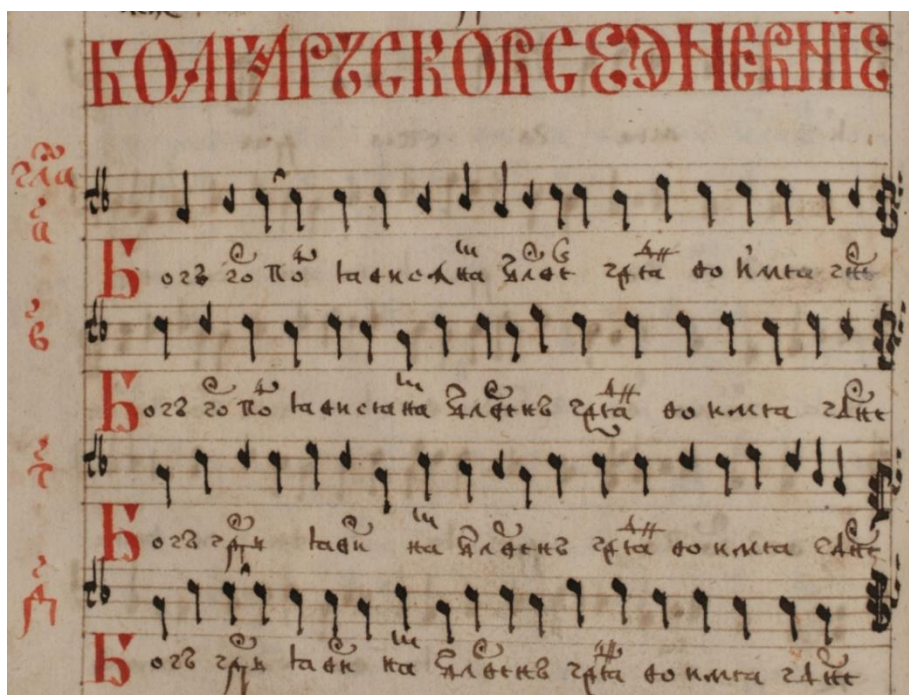 БОЛГАРЪСКОВСЕДНЕВНІЕ
гла а
Богъ гⷭо поⷣ ꙗвисѧ наⷨ блⷭве грѧ во имѧ гнⷭе
в
Богъ гⷭо поⷣ ꙗвисѧ наⷨ блⷭвенъ грѧ во имѧ гдⷭне
г
Богъ ꙗви наⷨ блⷭвенъ грѧ во имѧ гдⷭне
д
Богъ ꙗви наⷨ блⷭвенъ грѧ во имѧ гдⷭне